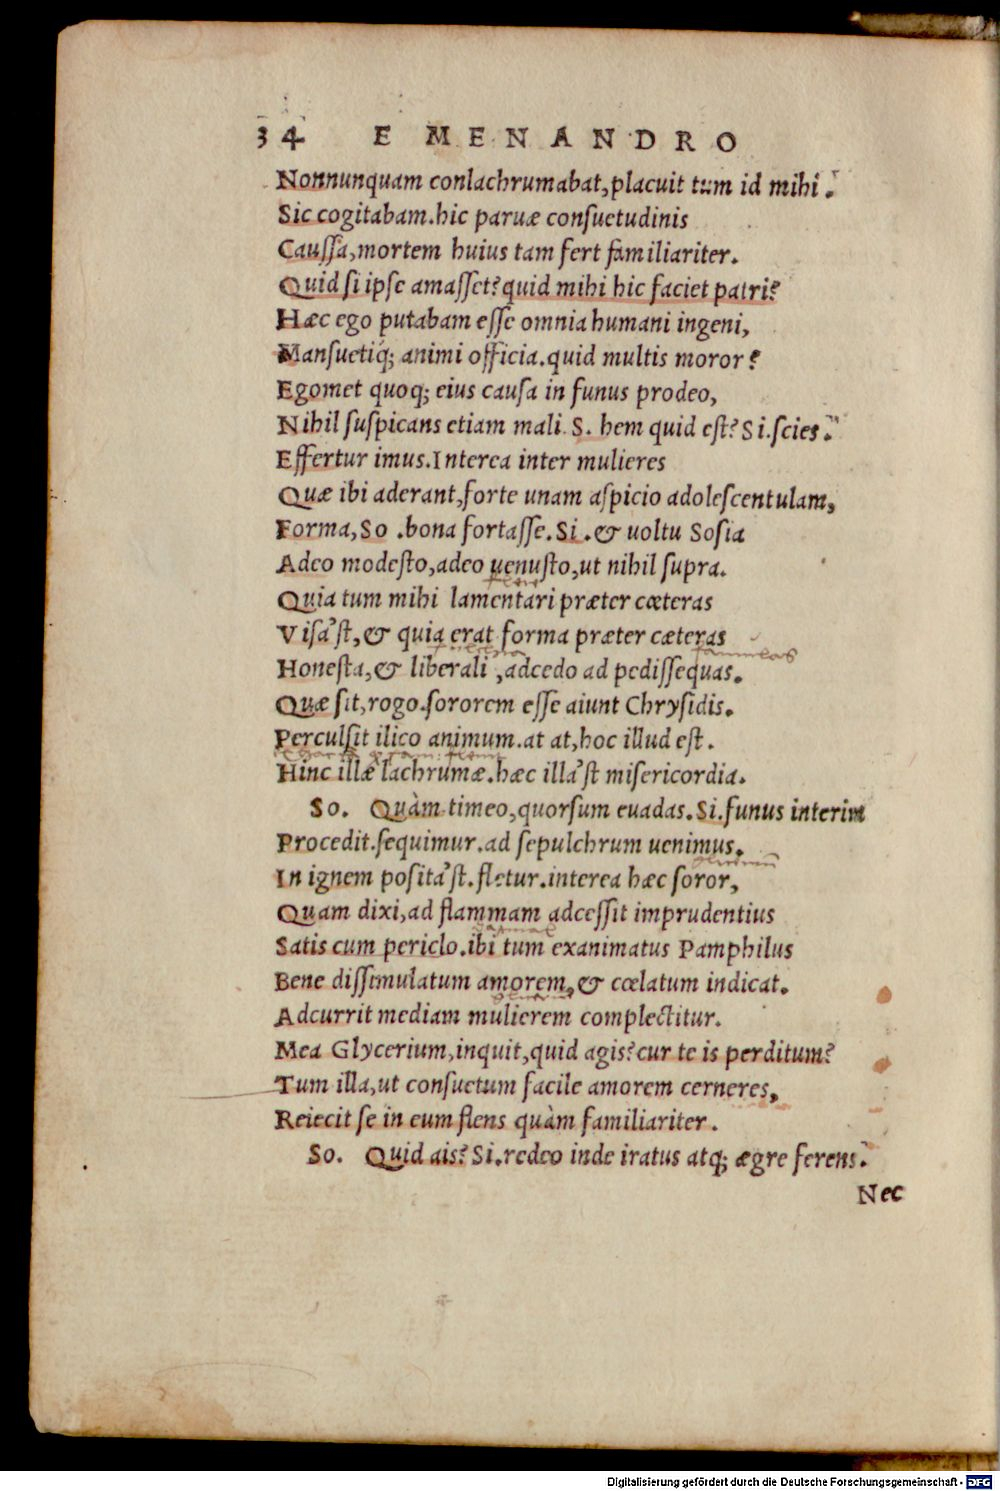 34 E MENANDRO
Nonnunquam conlachrumabat, placuit tum id mihi.
Sic cogitabam. hic paruæ conſuetudinis
Cauſſa, mortem huius tam fert familiariter.
Quid ſi ipſe amaſſet? quid mihi hic faciet patri?
Hæc ego putabam eſſe omnia humani ingeni,
Manſuetiq́; animi officia. quid multis moror?
Egomet quoq; eius cauſa in funus prodeo,
Nihil ſuſpicans etiam mali. S. hem quid eſt? Si. ſcies.
Effertur imus. Interea inter mulieres
Quæ ibi aderant, forte unam aſpicio adoleſcentulam,
Forma, So. bona fortaſſe. Si. & uoltu Soſia
Adeo modeſto, adeo uenuſto, ut nihil ſupra.
flere
Quia tum mihi lamentari præter cæteras
Viſa'ſt, & quia erat forma præter cæteras
famulas
Honeſta, & liberali, adcedo ad pediſſequas.
Quæ ſit, rogo. ſororem eſſe aiunt Chryſidis.
Perculſit ilico animum. at at, hoc illud eſt.
Hinc illæ lachrumæ. hæc illa'ſt miſericordia.
So. Quàm timeo, quorſum euadas. Si. funus interim
Procedit. ſequimur. ad ſepulchrum uenimus.
In ignem poſita'ſt. fletur. interea hæc ſoror,
Quam dixi, ad flammam adceſſit imprudentius
Satis cum periclo. ibi tum exanimatus Pamphilus
Bene diſſimulatum amorem, & cœlatum indicat.
Adcurrit mediam mulierem complectitur.
Mea Glycerium, inquit, quid agis? cur te is perditum?
Tum illa, ut conſuetum facile amorem cerneres,
Reiecit ſe in eum flens quàm familiariter.
So. Quid ais? Si. redeo inde iratus atq; ægre ferens.
Nec
Digitalisierung gefördert durch die Deutsche Forschungsgemeinschaft - DFG